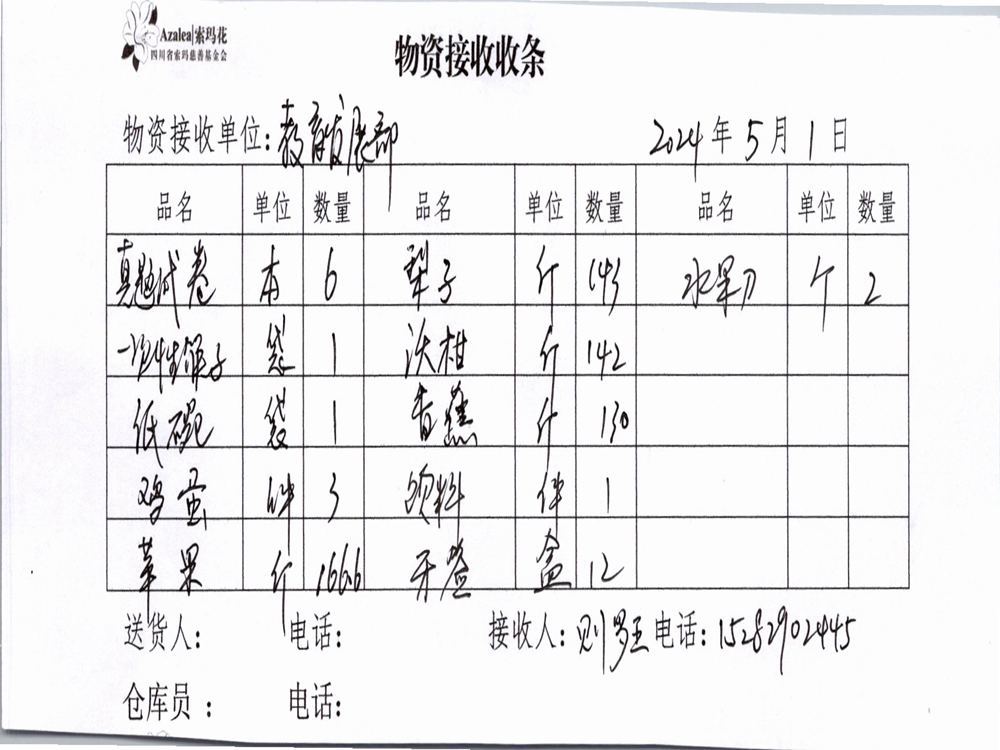 Azalea|索玛花
四川省索玛慈善基金会
物资接收收条
物资接收单位:教育发展部 2024年5月1日
品名 单位 数量 品名 单位 数量 品名 单位 数量
真题试卷 本 6 犁子 斤 143 水果刀 个 2
一次性筷子 袋 1 沃柑 斤 142
低碗 袋 1 香蕉 斤 130
鸡蛋 件 3 饮料 件 1
苹果 斤 166.6 牙签 盒 12
送货人: 电话: 接收人:则罗王 电话:15282902445
仓库员 : 电话: